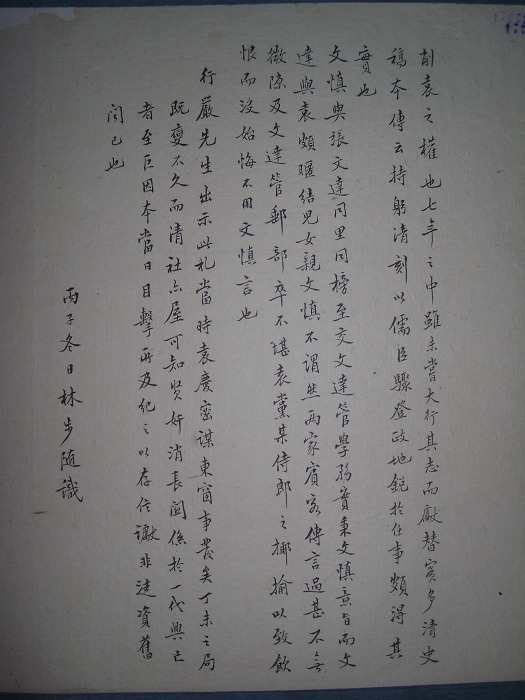 削袁之權也七年之中雖未嘗大行其志而獻替實多清史
稿本傳云持躬清刻以儒臣驟登政地銳於任事頗得其
實也
文慎與張文達同里同榜至交文達管學務實秉文慎意旨而文
達與袁頗暱結兒女親文慎不謂然兩家賓客傳言過甚不無
微隙及文達管郵部卒不堪袁黨某侍郎之揶揄以致飲
恨而沒始悔不用文慎言也
行嚴先生出示此札當時袁慶密謀東窗事發矣丁未之局
既變不久而清社亦屋可知賢奸消長關係於一代興亡
者至巨因本當日目擊所及紀之以存信讞非徒資舊
聞已也
丙子冬日林步隨識